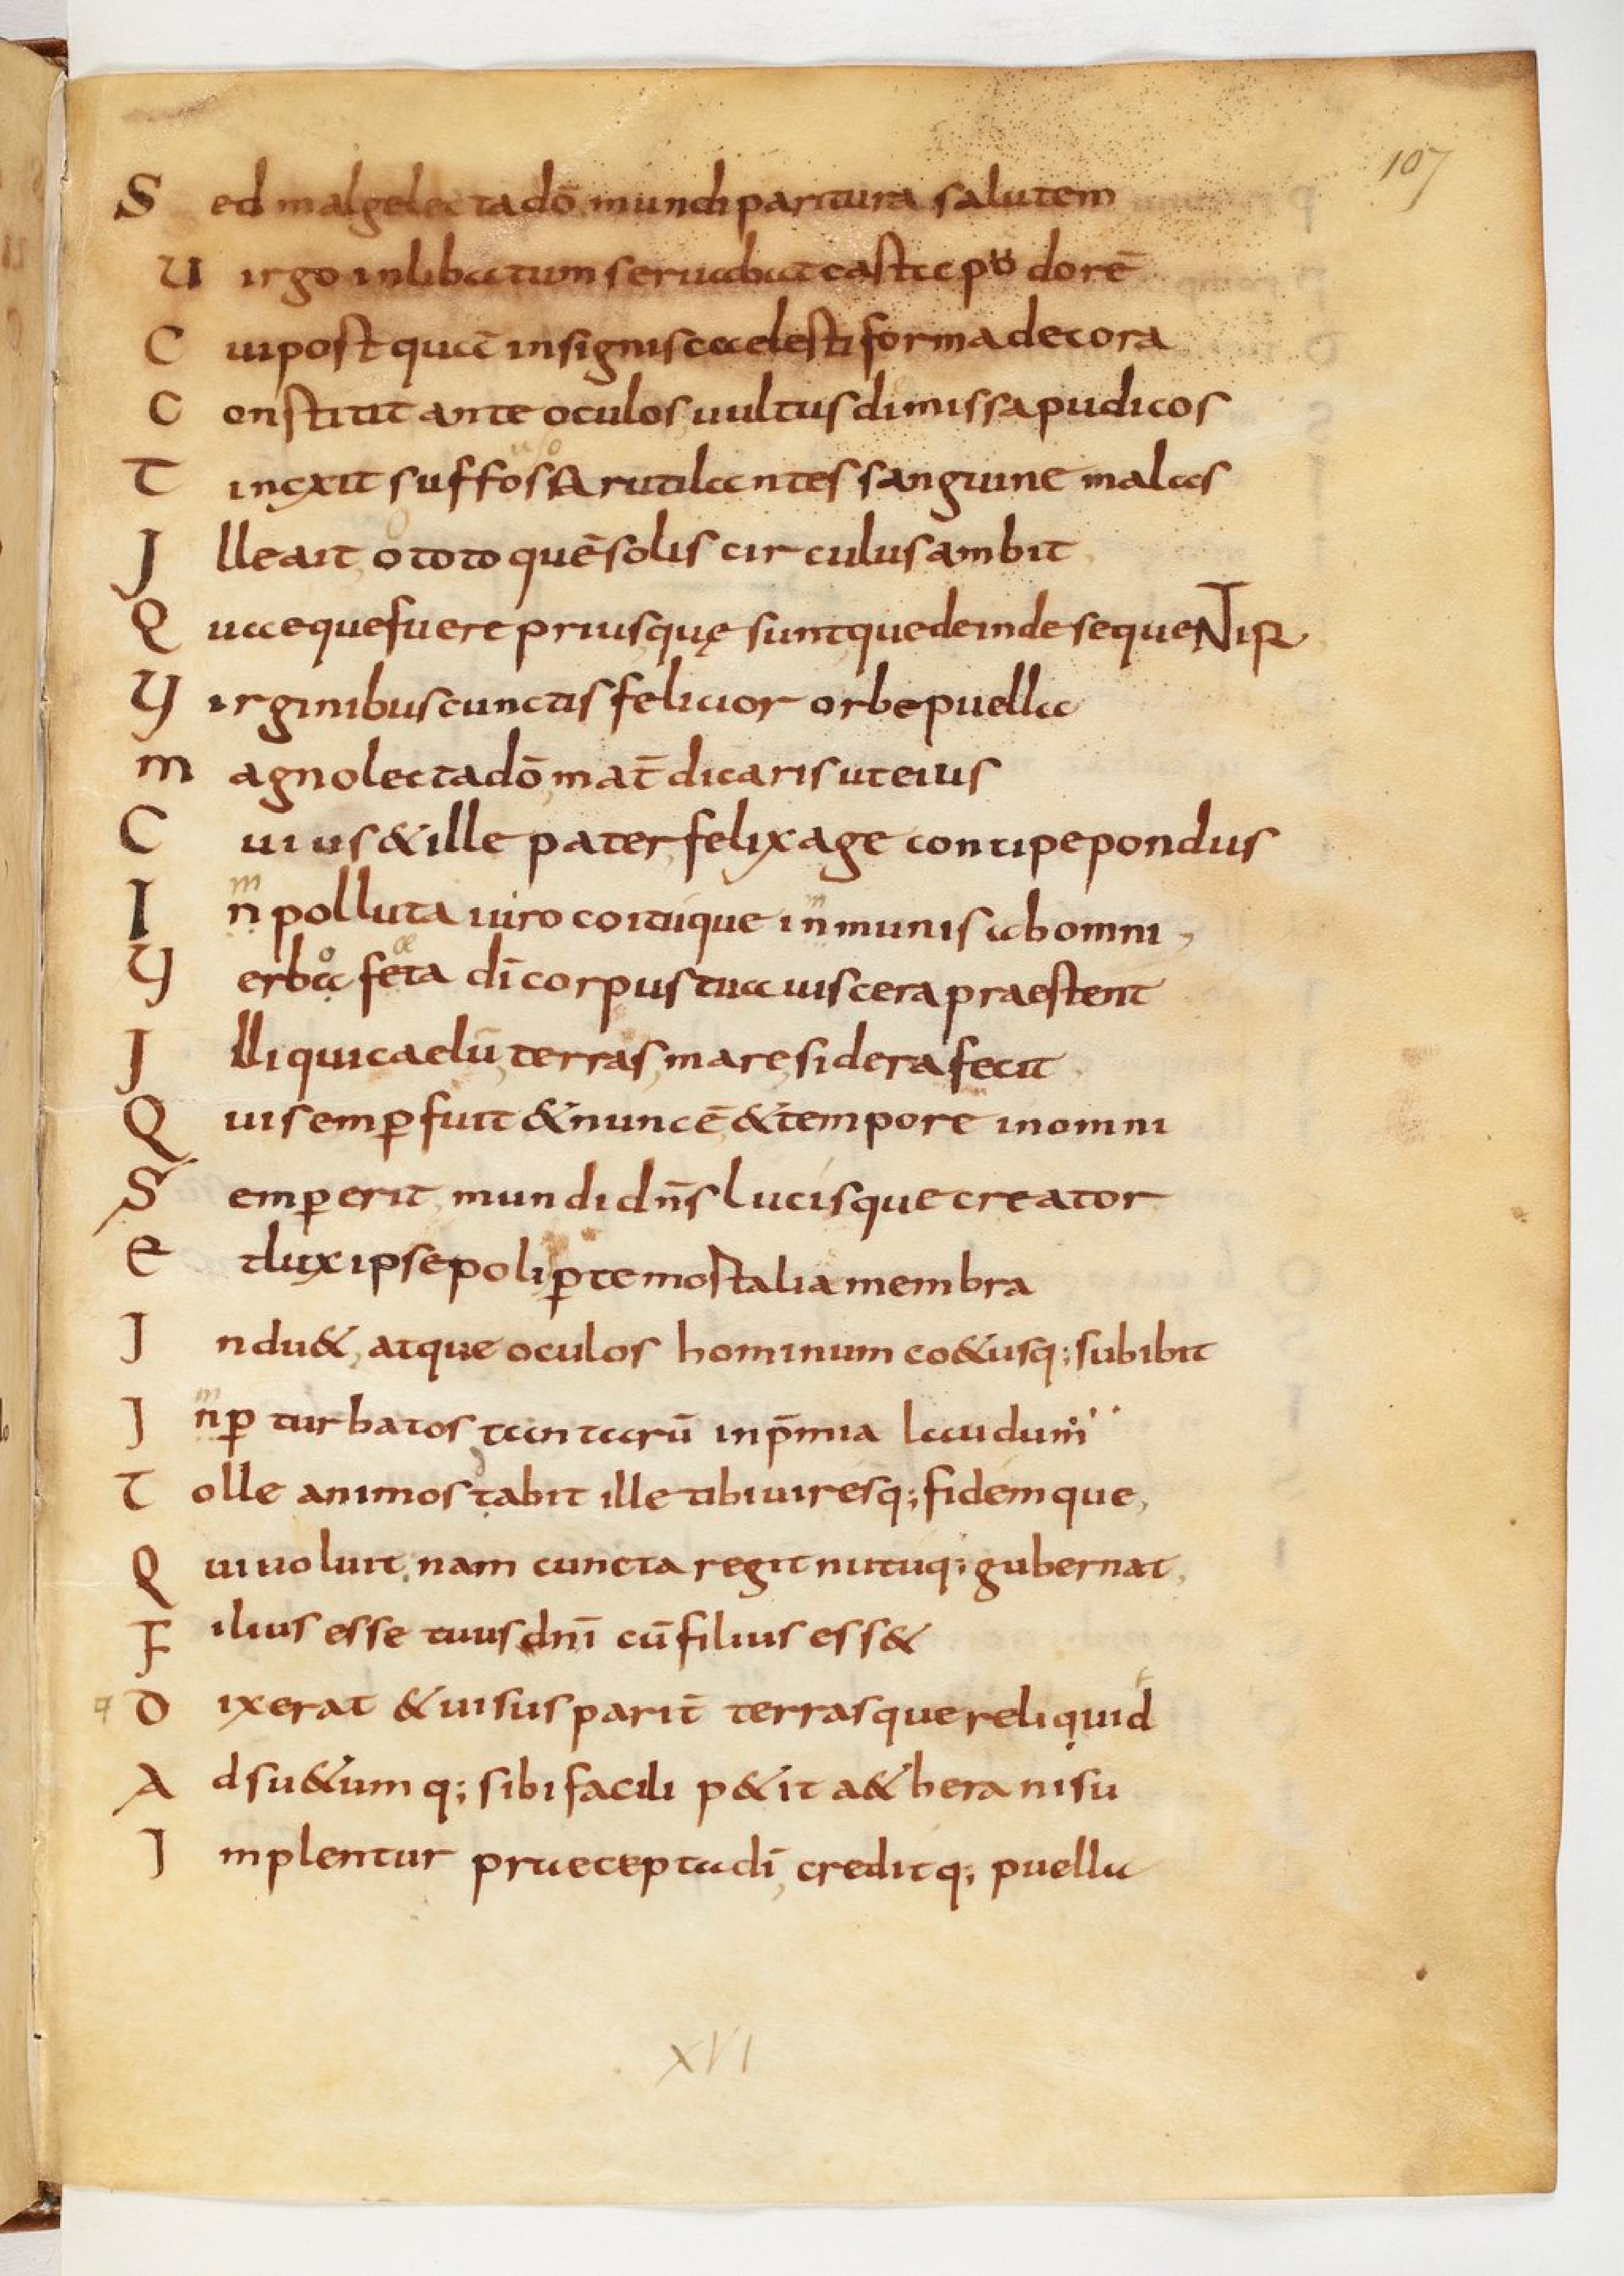 107
Sed malge lecta dō mundi paritura salutem
Uirgo inlibatum seruabat casta pudorē
Cui postquā insignis caelesti forma decora
Constitit ante oculos, uultus dimissa pudicos
Tinexit suffossa rutilantes sanguine malas
Ille ait, o toto quē solis circulus ambit
Quaeque fuere prius, quę sunt, que deinde sequeNTᴜR
Virginibus cunctis felicior orbe puella
Magno lecta dō, mat̄ dicaris ut eius
Cuius & ille pater, felix age concipe pondus
In polluta uiro coituque inmunis ab omni,
Verba feta di corpus tua uiscera praestent
Illi qui caelū, terras, mare, sidera fecit
Qui semp fuit & nunc ē, & tempore in omni
Semp erit, mundi dn̄s lucisque creator
Et lux ipse poli, p te mostalia membra
Indu&, atque oculos hominum co&usq; subibit
Inpturbatos tantarū in p̄mia laudum
Tolle animos tabit ille tibi uiresq; fidemque,
Qui uoluit, nam cuncta regit nutuq; gubernat,
Filius esse tuus dn̄i cū filius ess&
Dixerat & uisus parit̄ terrasque reliquid
Adsu&umq; sibi facili p&it a&hera nisu
Implentur praecepta di, creditq; puella
XVI